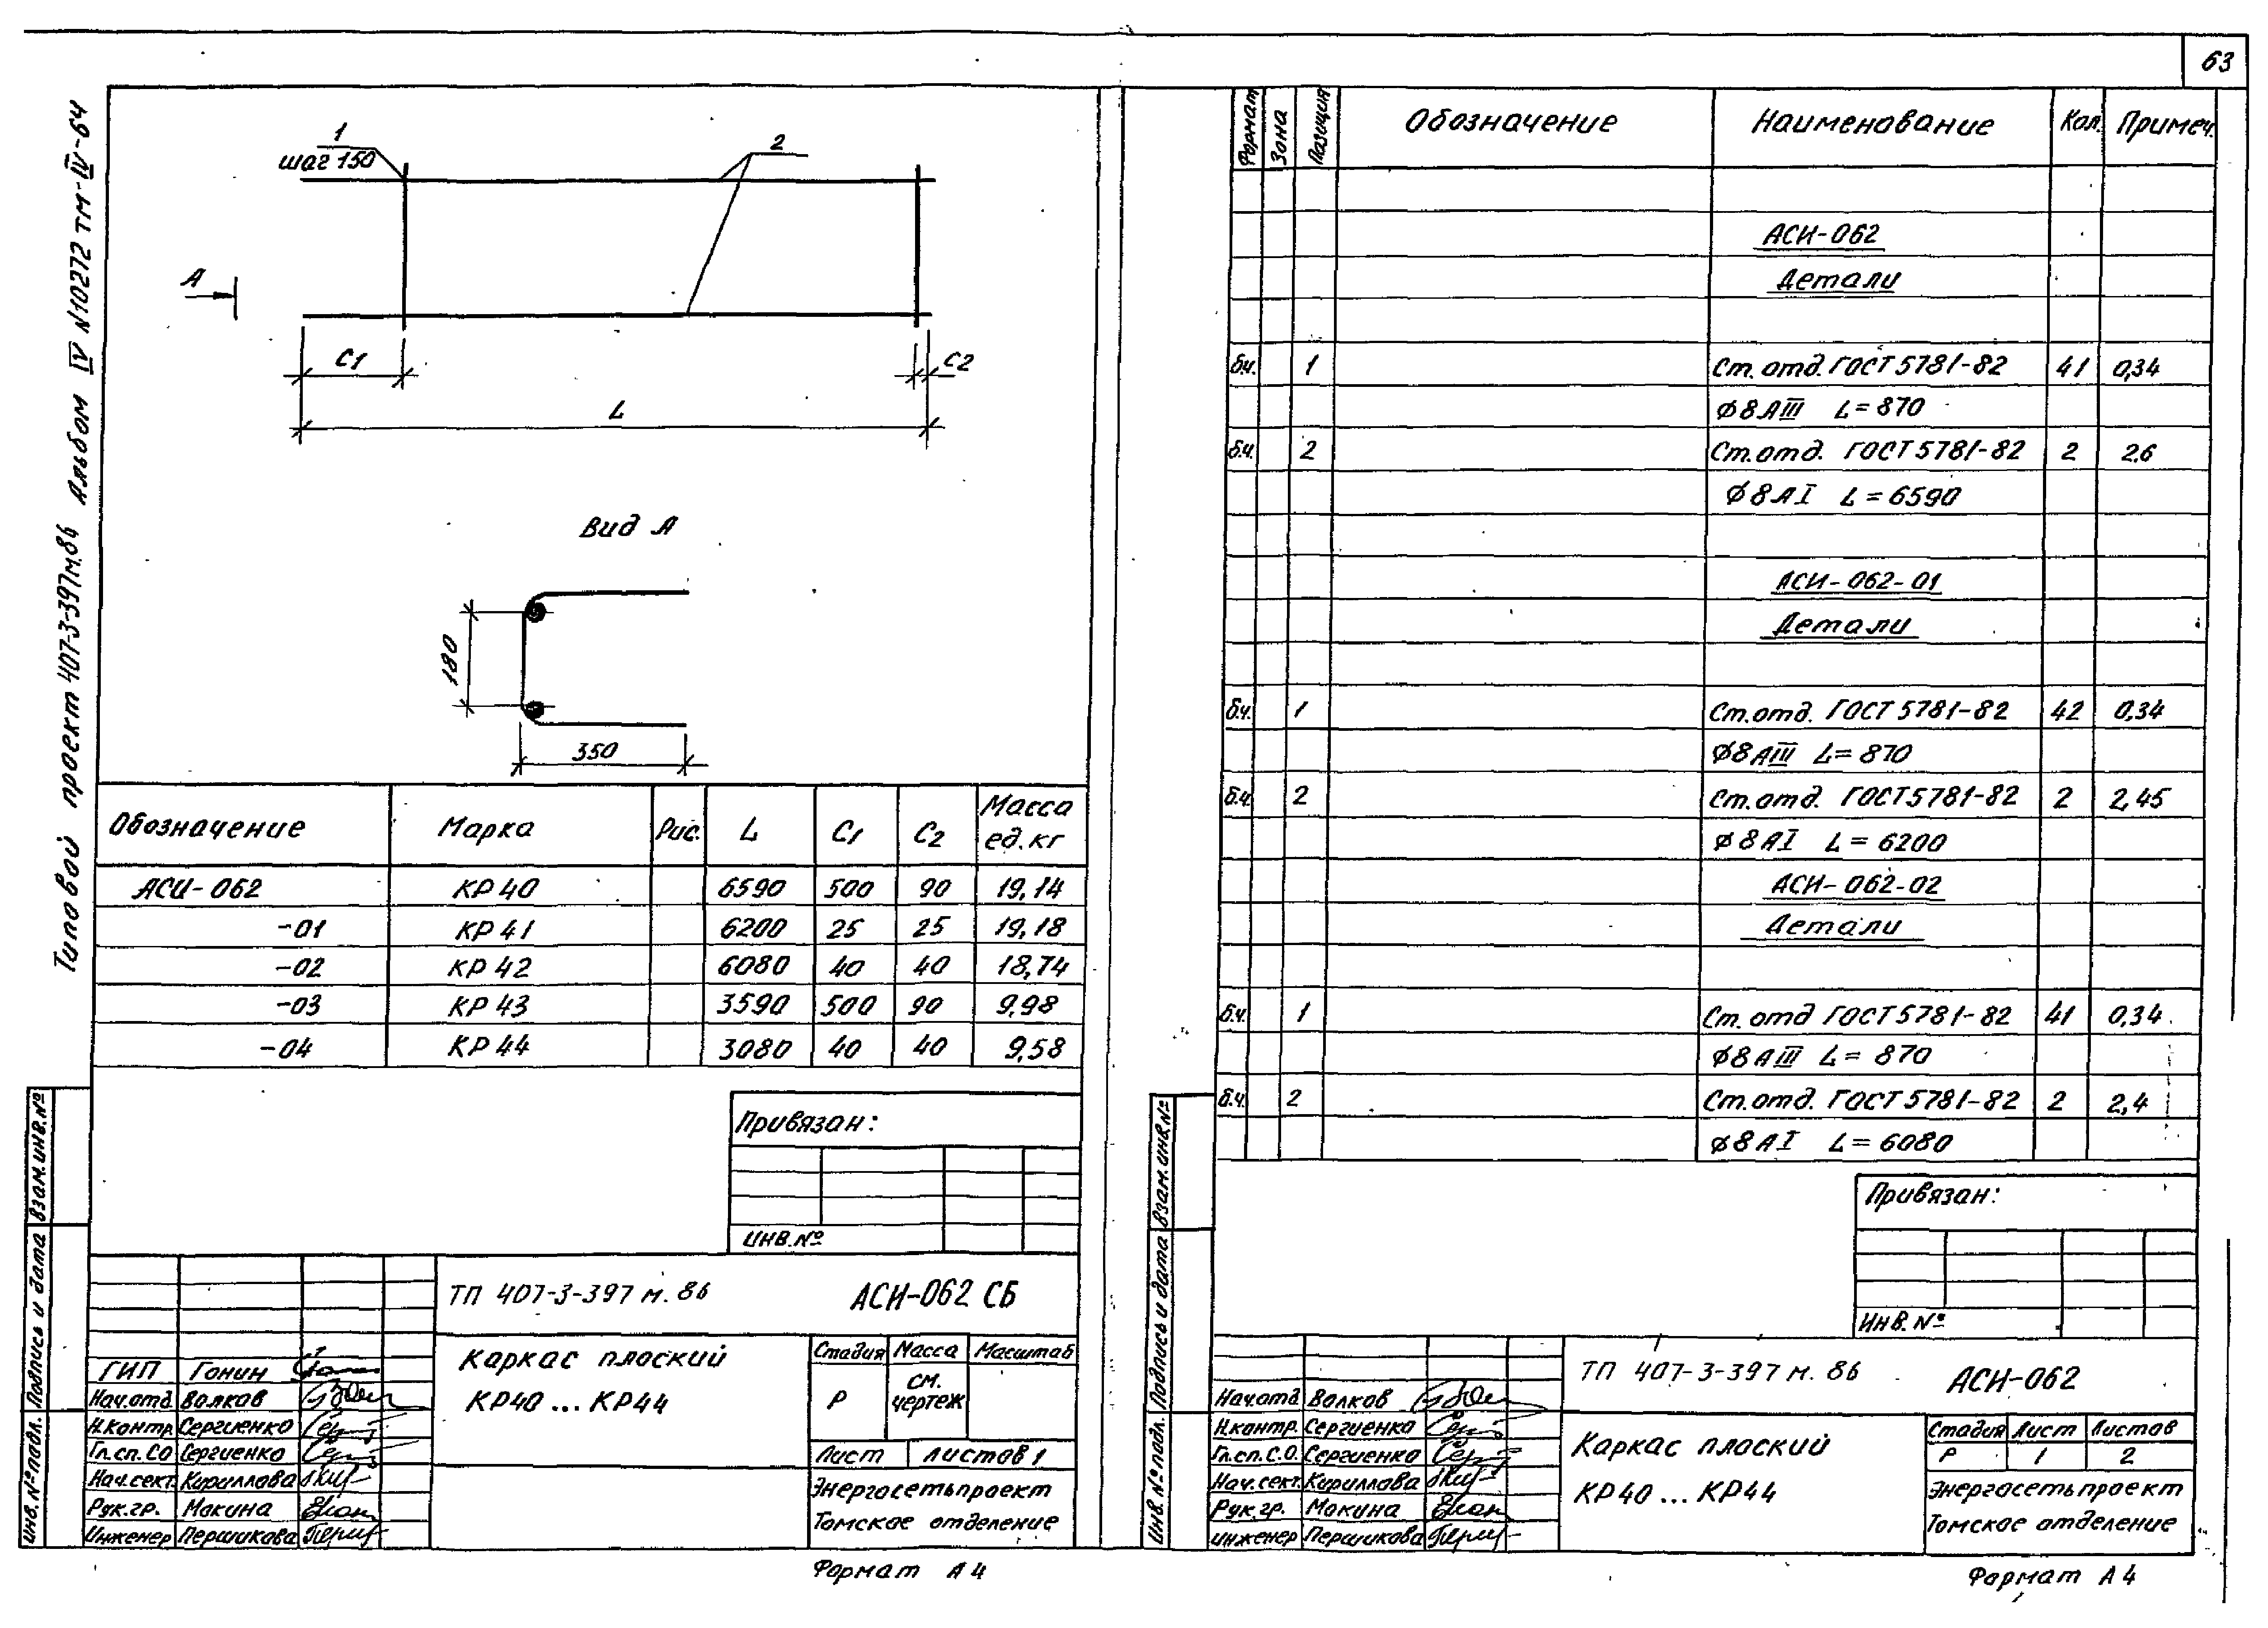 63
Типовой проект 407-3-397м.86 Альбом IV N10272 тм-IV-64
1
шаг 150
2
А
С1
С2
L
Вид А
180
350
Обозначение Марка Рис. L С1 С2 Масса ед. кг
АСИ-062 КР40 6590 500 90 19,14
-01 КР41 6200 25 25 19,18
-02 КР42 6080 40 40 18,74
-03 КР43 3590 500 90 9,98
-04 КР44 3080 40 40 9,58
Привязан:
ИНВ.№
Инв.№подл. Подпись и дата Взам.инв.№
ТП 407-3-397 м. 86 АСИ-062 СБ
ГИП Гонин
Нач.отд Волков
Н.контр. Сергиенко
Гл.сп.СО Сергиенко
Нач.сект. Кириллова
Рук.гр. Макина
Инженер Першикова
Каркас плоский
КР40 ... КР44
Стадия Масса Масштаб
Р см. чертеж
Лист Листов 1
Энергосетьпроект
Томское отделение
Формат А4
Формат Зона Позиция Обозначение Наименование Кол. Примеч.
АСИ-062
Детали
б.ч. 1 Ст. отд. ГОСТ 5781-82 41 0,34
Ø8АIII L=870
б.ч. 2 Ст. отд. ГОСТ 5781-82 2 2,6
Ø8АI L=6590
АСИ-062-01
Детали
б.ч. 1 Ст. отд. ГОСТ 5781-82 42 0,34
Ø8АIII L=870
б.ч. 2 Ст. отд. ГОСТ 5781-82 2 2,45
Ø8АI L=6200
АСИ-062-02
Детали
б.ч. 1 Ст. отд ГОСТ 5781-82 41 0,34
Ø8АIII L=870
б.ч. 2 Ст. отд. ГОСТ 5781-82 2 2,4
Ø8АI L=6080
Привязан:
Инв.№
Инв.№подл. Подпись и дата Взам.инв.№
ТП 407-3-397 м. 86 АСИ-062
Нач.отд Волков
Н.контр. Сергиенко
Гл.сп.С.О. Сергиенко
Нач.сект. Кириллова
Рук.гр. Макина
Инженер Першикова
Каркас плоский
КР40 ... КР44
Стадия Лист Листов
Р 1 2
Энергосетьпроект
Томское отделение
Формат А4